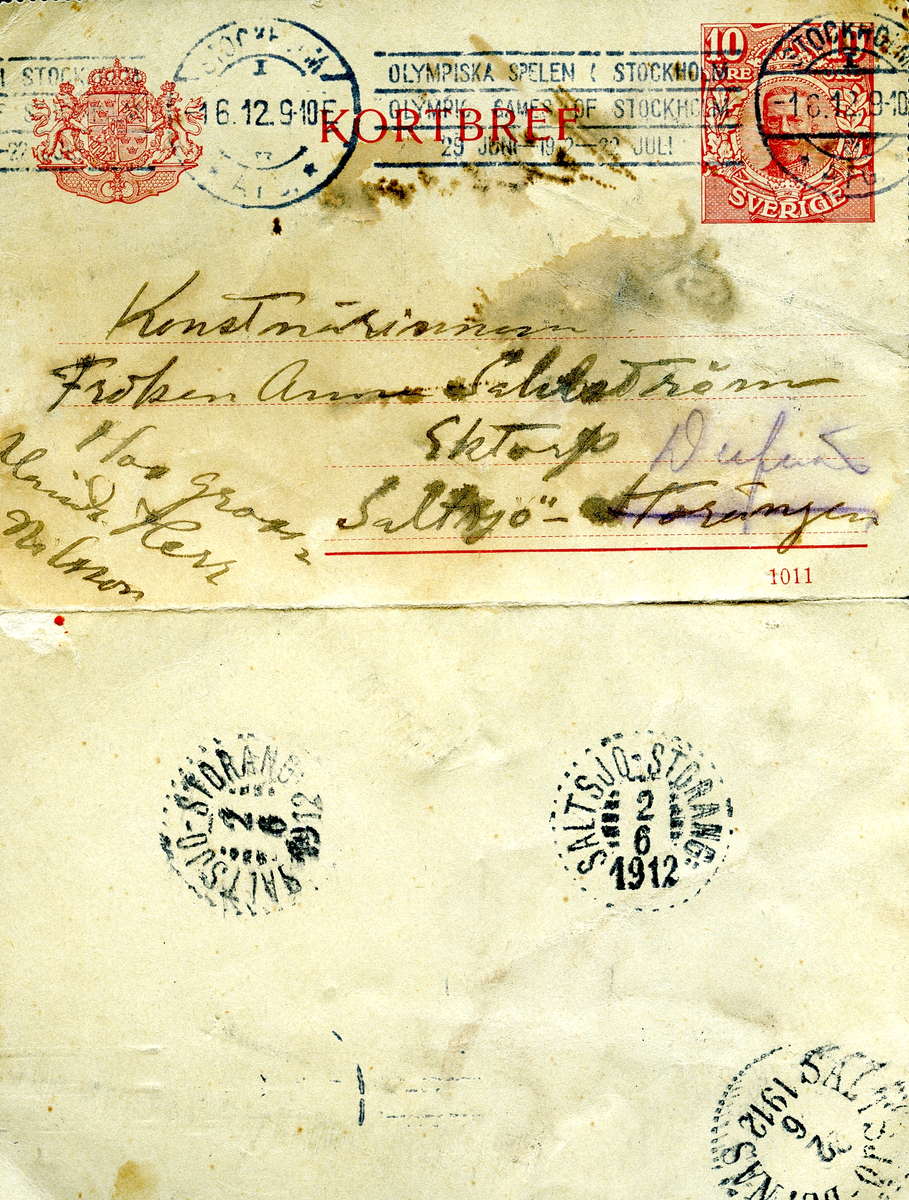 STOCKHOLM
I
-1 6.12.9-10E
3
* AFG. *
OLYMPISKA SPELEN I STOCKHOLM
OLYMPIC GAMES OF STOCKHOLM
29 JUNI-1912-22 JULI
KORTBREF
10
ÖRE
SVERIGE
STOCKHOLM
-1 6.12.9-10
Konstnärinnan
Fröken Anna Sahlström
Ektorp
Dufnäs
Saltsjö-Storängen
Hos Gross-
Herr
Nilsson
1011
SALTSJÖ-STORÄNG.
2
6
1912
SALTSJÖ-STORÄNG.
2
6
1912
SALTSJÖ-
2
6
1912
NÄS